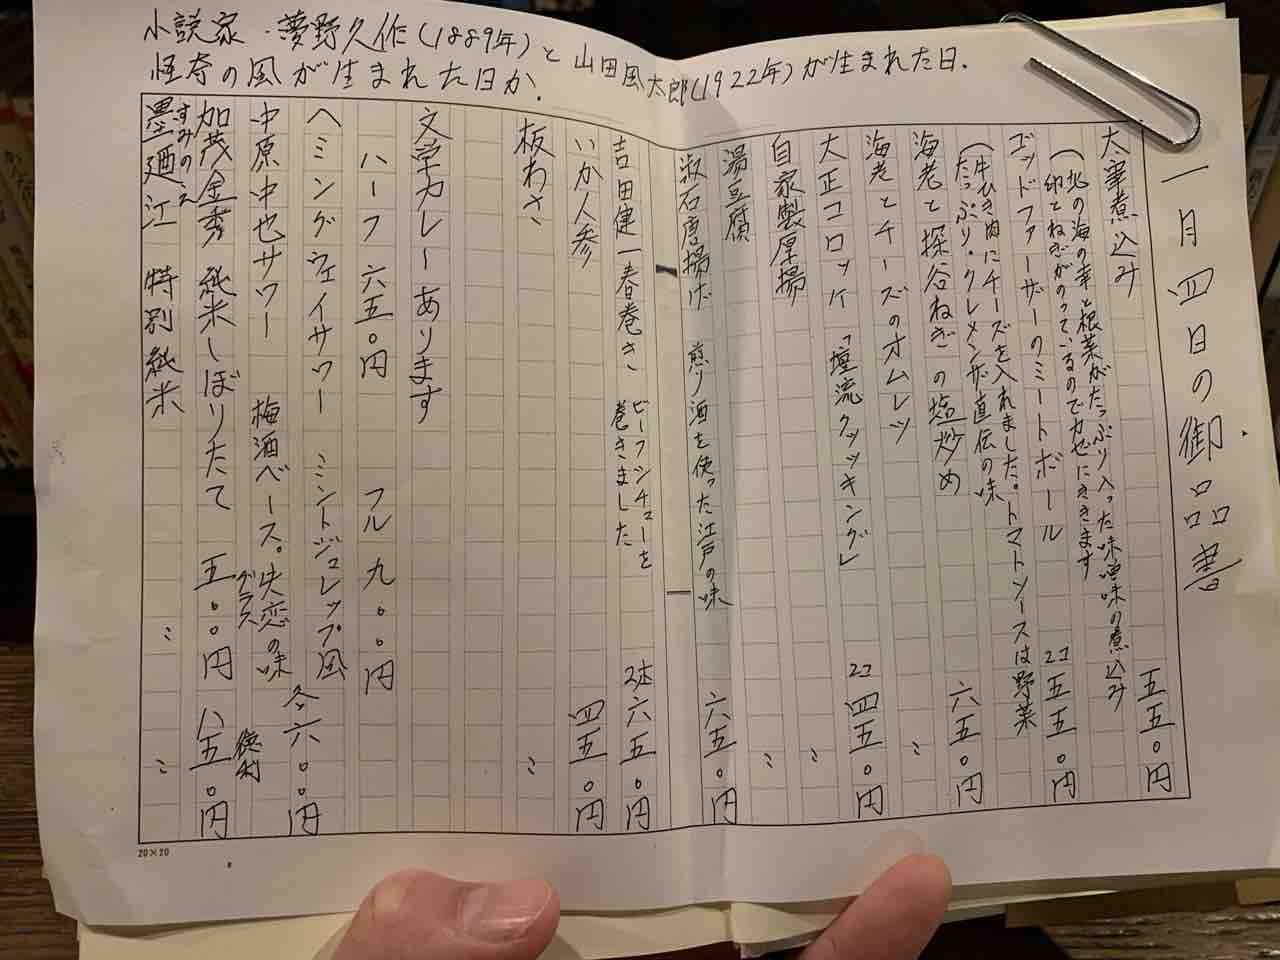 小説家・夢野久作(1889年)と山田風太郎(1922年)が生まれた日.
怪奇の風が生まれた日か.
一月四日の御品書
大寒煮込み 五五〇円
(北の海の幸と根菜がたっぷり入った味噌味の煮込み
卵とねぎがのっているのでカゼにききます
ゴッドファーザーのミートボール 2コ 五五〇円
(牛ひき肉にチーズを入れました。トマトソースは野菜
たっぷり・クレメンザ直伝の味
海老と深谷ねぎの塩炒め 六五〇円
海老とチーズのオムレツ 〃
大正コロッケ 「壇流クッキング」 2コ 四五〇円
自家製厚揚 〃
湯豆腐 〃
漱石唐揚げ 煎り酒を使った江戸の味 六五〇円
吉田健一春巻き ビーフシチューを巻きました 2本 六五〇円
いか人参 四五〇円
板わさ 〃
文学カレーあります
ハーフ 六五〇円 フル 九〇〇円
ヘミングウェイサワー ミントジュレップ風
中原中也サワー 梅酒ベース。失恋の味 各六〇〇円
加茂金秀 純米しぼりたて グラス 五〇〇円 徳利 八五〇円
墨廼江 すみのえ 特別純米 〃 〃
20×20